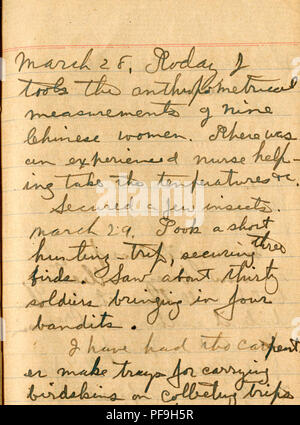 March 28, Today I
took the anthropometrical
measurements of nine
Chinese women. There was
an experienced nurse help-
ing take the temperatures &c.
Secured a few insects.
March 29. Took a short
hunting-trip, securing three
birds. Saw about thirty
soldiers bringing in four
bandits.
I have had the carpent
er make trays for carrying
birdskins on collecting trips
alamy
PF9H5R